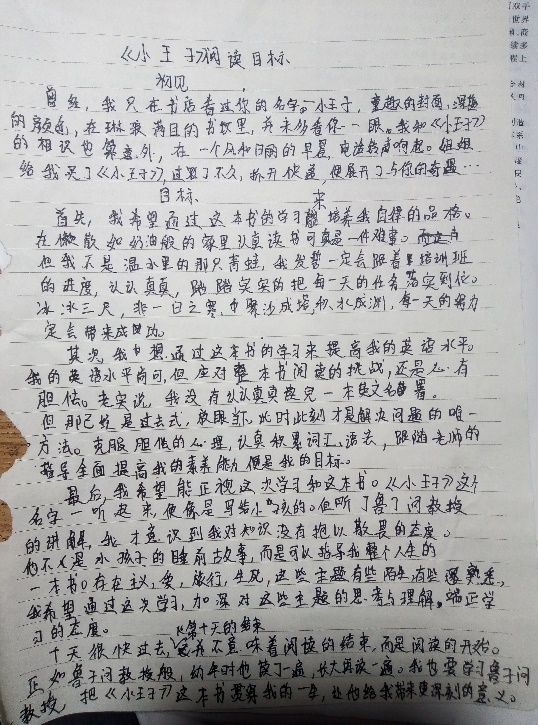 《小王子》阅读目标
初见
曾经，我只在书店看过你的名字——小王子，童趣的封面，深蓝
的颜色，在琳琅满目的书坟里，并未多看你一眼。我和《小王子》
的相识也算意外，在一个风和日丽的早晨，电话铃声响起。姐姐
给我买了《小王子》，过了不久，拆开快递，便展开了与你的奇遇…
目标
首先，我希望通过这本书的学习来培养我自律的品格。
在懒散如奶油般的寒假里认真读书可真是一件难事。
但我不是温水里的那只青蛙，我发誓一定会跟着培训班
的进度，认认真真，踏踏实实的把每一天的任务落实到位。
冰冻三尺，非一日之寒，聚沙成塔，积水成渊，每一天的努力
定会带来成功。
其次，我想通过这本书的学习来提高我的英语水平。
我的英语水平尚可，但应对整本书阅读的挑战，还是心有
胆怯。老实说，我没有认认真真读完一本英文名著。
但那已经是过去式，放眼当下，此时此刻才是解决问题的唯一
方法。克服胆怯的心理，认真积累词汇、语法，跟随老师的
指导全面提高我的素养能力便是我的目标。
最后，我希望能正视这次学习和这本书。《小王子》这个
名字一听起来，便像是写给小孩的。但听了鲁子问教授
的讲解，我才意识到我对知识没有抱以敬畏的态度。
他不仅是小孩子的睡前故事，而是可以指导我整个人生的
一本书。存在主义，爱，旅行，生死，这些主题有些陌生有些熟悉，
我希望通过这次学习，加深对这些主题的思考与理解。端正学
习的态度。
第十天的结束
十天很快过去，并不意味着阅读的结束，而是阅读的开始。
正如鲁子问教授般，幼年时他读了一遍，长大再读一遍。我也要学习鲁子问
教授，把《小王子》这本书贯穿我的一生，让他给我带来更深刻的意义。